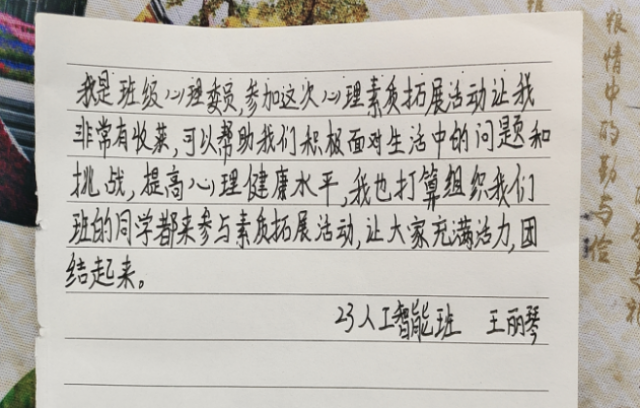 我是班级心理委员,参加这次心理素质拓展活动让我
非常有收获,可以帮助我们积极面对生活中的问题和
挑战,提高心理健康水平,我也打算组织我们
班的同学都来参与素质拓展活动,让大家充满活力,团
结起来。
23人工智能班 王丽琴
粮情中的勤与俭